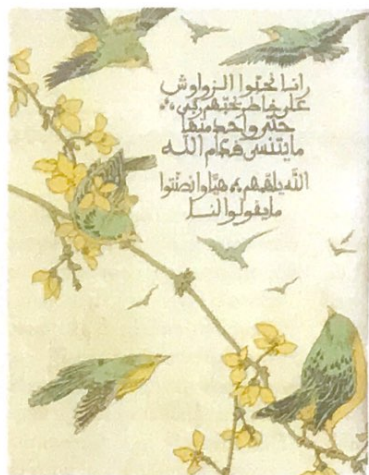 رانا نحبّوا الزواوش
على خاطر يحبّهم ربّي
حتّى واحد منها
ما يتنسى قدام الله
الله هيّا وانصّتوا
ما يقولوا لنا